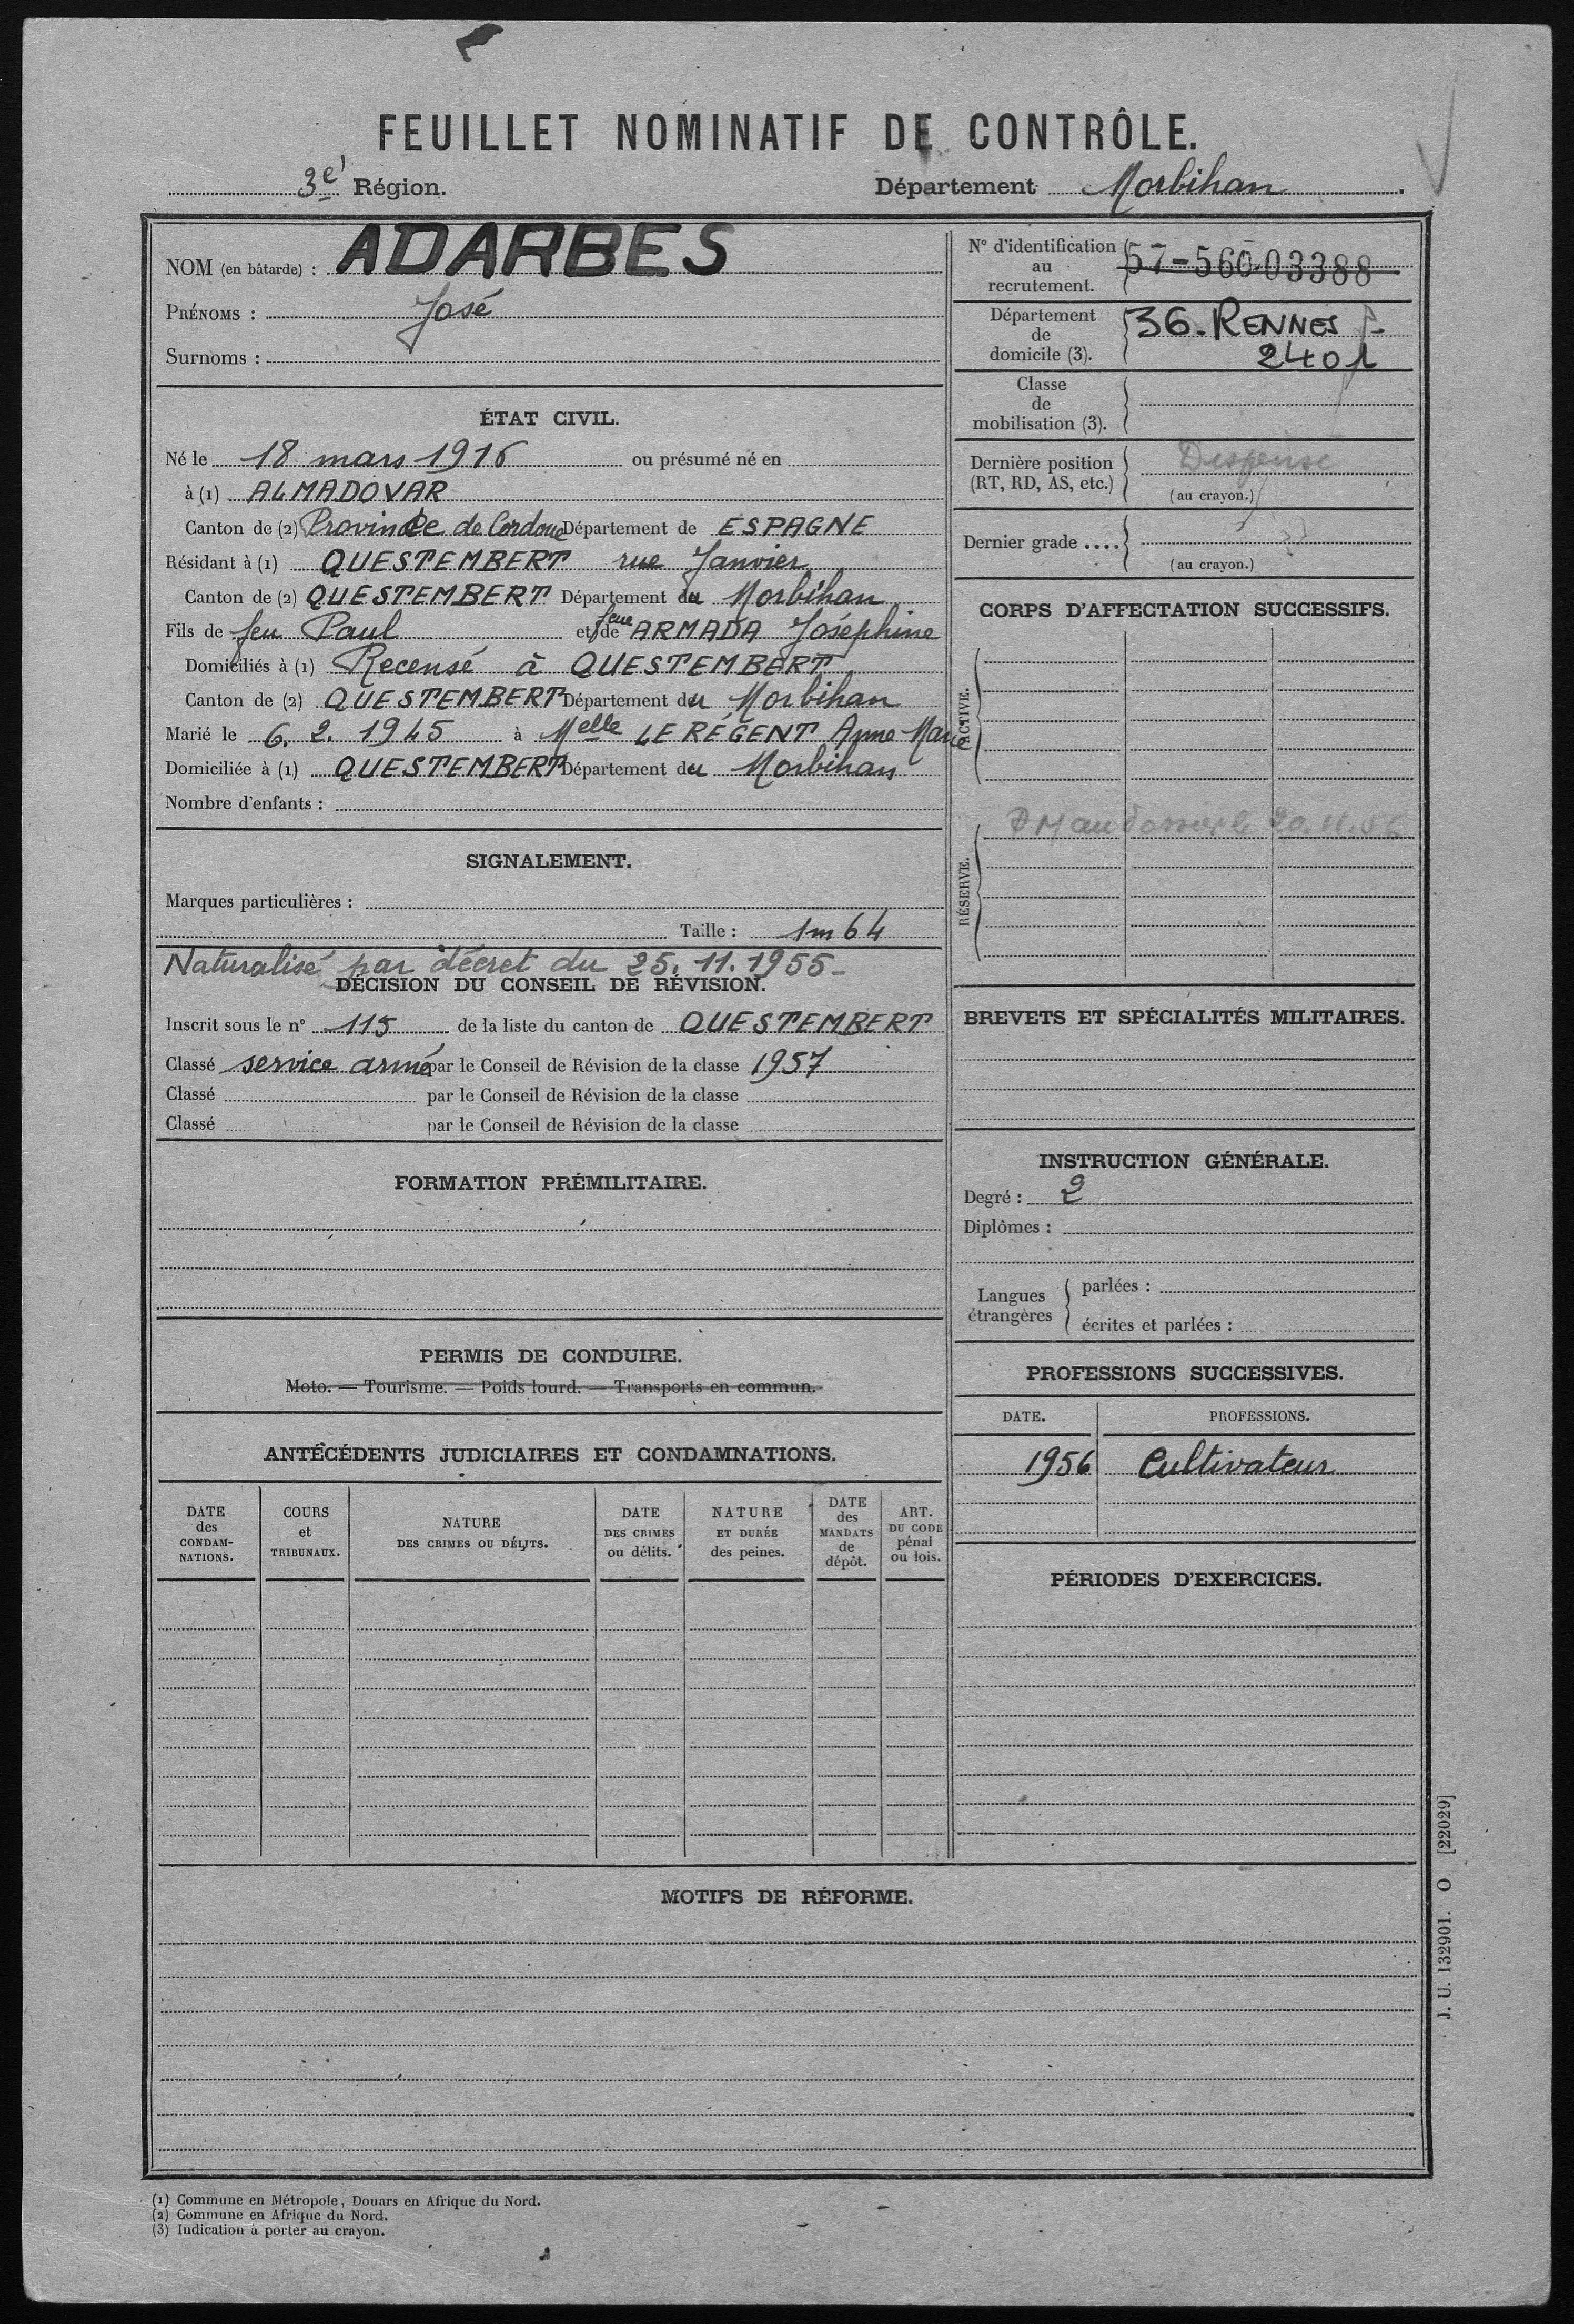 FEUILLET NOMINATIF DE CONTRÔLE.
3e Région.
Département Morbihan.
NOM (en bâtarde) : ADARBES
PRÉNOMS : José
Surnoms :
ÉTAT CIVIL.
Né le 18 mars 1916 ou présumé né en
à (1) ALMADOVAR
Canton de (2) Province de Cordoue Département de ESPAGNE
Résidant à (1) QUESTEMBERT rue Janvier
Canton de (2) QUESTEMBERT Département du Morbihan
Fils de feu Paul et feue de ARMADA Joséphine
Domiciliés à (1) Recensé à QUESTEMBERT
Canton de (2) QUESTEMBERT Département du Morbihan
Marié le 6. 2. 1945 à Melle LE RÉGENT Anne Marie
Domiciliée à (1) QUESTEMBERT Département du Morbihan
Nombre d'enfants :
SIGNALEMENT.
Marques particulières :
Taille : 1m64
Naturalisé par décret du 25.11.1955-
DÉCISION DU CONSEIL DE RÉVISION.
Inscrit sous le n° 115 de la liste du canton de QUESTEMBERT
Classé service armé par le Conseil de Révision de la classe 1957
Classé par le Conseil de Révision de la classe
Classé par le Conseil de Révision de la classe
FORMATION PRÉMILITAIRE.
PERMIS DE CONDUIRE.
Moto. — Tourisme. — Poids lourd. — Transports en commun.
ANTÉCÉDENTS JUDICIAIRES ET CONDAMNATIONS.
DATE des CONDAM-NATIONS.
COURS et TRIBUNAUX.
NATURE DES CRIMES OU DÉLITS.
DATE DES CRIMES ou délits.
NATURE ET DURÉE des peines.
DATE des MANDATS de dépôt.
ART. DU CODE pénal ou lois.
N° d'identification au recrutement. 57-560-03388
Département de domicile (3). 36-RENNES
2401
Classe de mobilisation (3).
Dernière position (RT, RD, AS, etc.) Dispensé
(au crayon.)
Dernier grade ....
(au crayon.)
CORPS D'AFFECTATION SUCCESSIFS.
ACTIVE.
RÉSERVE.
au dossier le 20.11.56
BREVETS ET SPÉCIALITÉS MILITAIRES.
INSTRUCTION GÉNÉRALE.
Degré : 2
Diplômes :
Langues étrangères
parlées :
écrites et parlées :
PROFESSIONS SUCCESSIVES.
DATE. PROFESSIONS.
1956 Cultivateur
PÉRIODES D'EXERCICES.
MOTIFS DE RÉFORME.
(1) Commune en Métropole, Douars en Afrique du Nord.
(2) Commune en Afrique du Nord.
(3) Indication à porter au crayon.
J. U. 132901. O [22029]